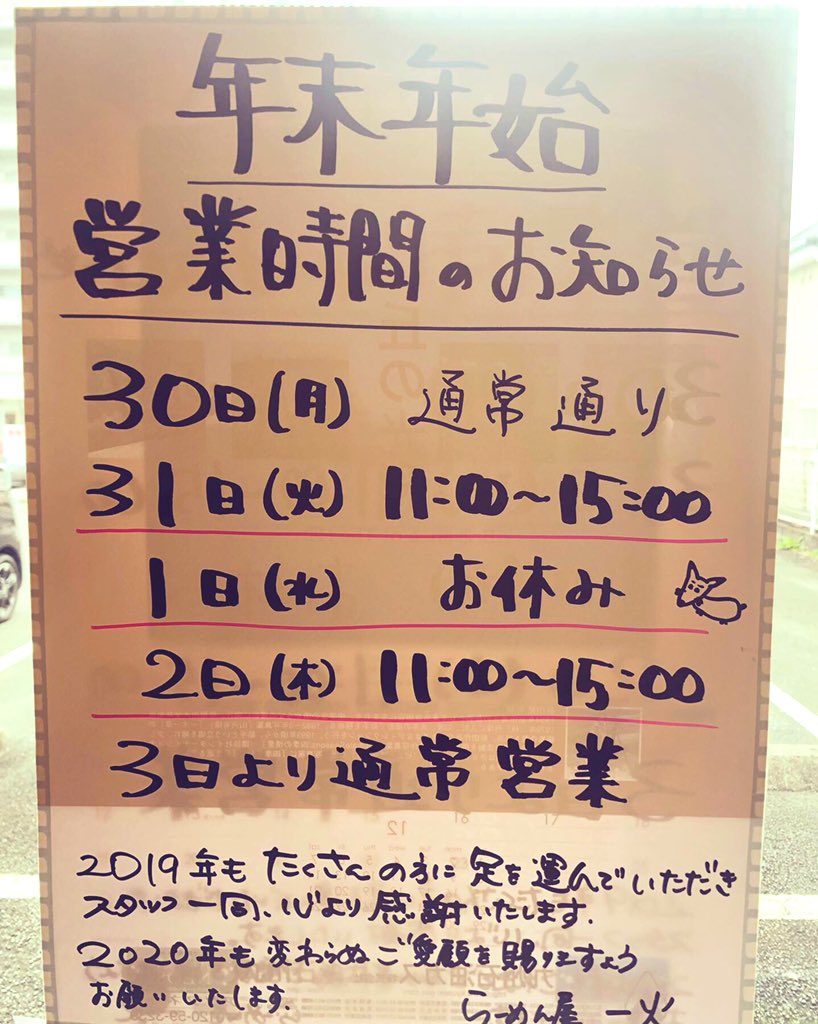 年末年始
営業時間のお知らせ
30日(月) 通常通り
31日(火) 11:00~15:00
1日(水) お休み
2日(木) 11:00~15:00
3日より通常営業
2019年も たくさんの方に 足を運んでいただき
スタッフ一同、心より感謝いたします.
2020年も変わらぬご愛顧を賜りますよう
お願いいたします.
らーめん屋 一火